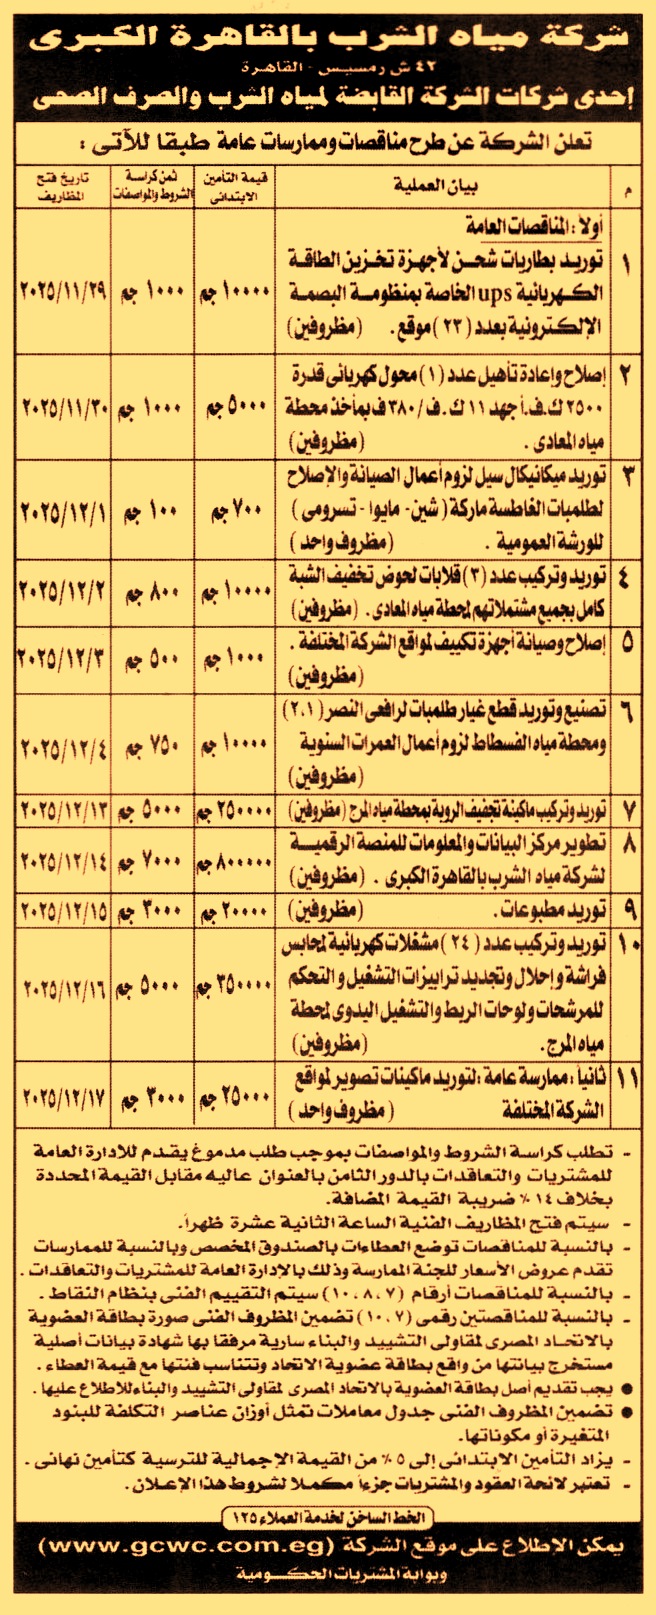 شركة مياه الشرب بالقاهرة الكبرى
٤٢ ش رمسيس - القاهرة
إحدى شركات الشركة القابضة لمياه الشرب والصرف الصحى
تعلن الشركة عن طرح مناقصات وممارسات عامة طبقا للآتى :
م بيان العملية قيمة التأمين الابتدائى ثمن كراسة الشروط والمواصفات تاريخ فتح المظاريف
أولاً : المناقصات العامة
١ توريد بطاريات شحن لأجهزة تخزين الطاقة
الكهربائية ups الخاصة بمنظومة البصمة
الإلكترونية بعدد (٢٣) موقع . (مظروفين)
١٠٠٠٠ جم ١٠٠٠ جم ٢٠٢٥/١١/٢٩
٢ إصلاح وإعادة تأهيل عدد (١) محول كهربائى قدرة
٢٥٠٠ ك.ف.أ جهد ١١ ك.ف/٣٨٠ف بمأخذ محطة
مياه المعادى . (مظروفين)
٥٠٠٠ جم ١٠٠٠ جم ٢٠٢٥/١١/٣٠
٣ توريد ميكانيكال سيل لزوم أعمال الصيانة والإصلاح
لطلمبات الغاطسة ماركة (شين - مايوا - تسرومى)
للورشة العمومية . (مظروف واحد)
٧٠٠ جم ١٠٠ جم ٢٠٢٥/١٢/١
٤ توريد وتركيب عدد (٣) قلابات لحوض تخفيف الشبة
كامل بجميع مشتملاتهم لمحطة مياه المعادى . (مظروفين)
١٠٠٠٠ جم ٨٠٠ جم ٢٠٢٥/١٢/٢
٥ إصلاح وصيانة أجهزة تكييف لمواقع الشركة المختلفة .
(مظروفين)
١٠٠٠ جم ٥٠٠ جم ٢٠٢٥/١٢/٣
٦ تصنيع وتوريد قطع غيار طلمبات لرافعى النصر (٢،١)
ومحطة مياه الفسطاط لزوم أعمال العمرات السنوية
(مظروفين)
١٠٠٠٠ جم ٧٥٠ جم ٢٠٢٥/١٢/٤
٧ توريد وتركيب ماكينة تجفيف الروبة بمحطة مياه المرج (مظروفين)
٢٥٠٠٠٠ جم ٥٠٠٠ جم ٢٠٢٥/١٢/١٣
٨ تطوير مركز البيانات والمعلومات للمنصة الرقمية
لشركة مياه الشرب بالقاهرة الكبرى . (مظروفين)
٨٠٠٠٠٠ جم ٧٠٠٠ جم ٢٠٢٥/١٢/١٤
٩ توريد مطبوعات . (مظروفين)
٢٠٠٠٠ جم ٣٠٠٠ جم ٢٠٢٥/١٢/١٥
١٠ توريد وتركيب عدد (٢٤) مشغلات كهربائية لمحابس
فراشة وإحلال وتجديد ترابيزات التشغيل والتحكم
للمرشحات ولوحات الربط والتشغيل اليدوى لمحطة
مياه المرج . (مظروفين)
٣٥٠٠٠٠ جم ٥٠٠٠ جم ٢٠٢٥/١٢/١٦
١١ ثانياً : ممارسة عامة :لتوريد ماكينات تصوير لمواقع
الشركة المختلفة (مظروف واحد)
٢٥٠٠٠ جم ٣٠٠٠ جم ٢٠٢٥/١٢/١٧
- تطلب كراسة الشروط والمواصفات بموجب طلب مدموغ يقدم للادارة العامة
للمشتريات والتعاقدات بالدور الثامن بالعنوان عاليه مقابل القيمة المحددة
بخلاف ١٤ ٪ ضريبة القيمة المضافة.
- سيتم فتح المظاريف الفنية الساعة الثانية عشرة ظهراً.
- بالنسبة للمناقصات توضع العطاءات بالصندوق المخصص وبالنسبة للممارسات
تقدم عروض الأسعار للجنة الممارسة وذلك بالإدارة العامة للمشتريات والتعاقدات .
- بالنسبة للمناقصات أرقام (١٠،٨،٧) سيتم التقييم الفنى بنظام النقاط .
- بالنسبة للمناقصتين رقمى (١٠،٧) تضمين المظروف الفنى صورة بطاقة العضوية
بالاتحاد المصرى لمقاولى التشييد والبناء سارية مرفقا بها شهادة بيانات أصلية
مستخرج بيانتها من واقع بطاقة عضوية الاتحاد وتتناسب فئتها مع قيمة العطاء .
● يجب تقديم أصل بطاقة العضوية بالاتحاد المصرى لمقاولى التشييد والبناء للاطلاع عليها .
● تضمين المظروف الفنى جدول معاملات تمثل أوزان عناصر التكلفة للبنود
المتغيرة أو مكوناتها.
- يزاد التأمين الابتدائى إلى ٥٪ من القيمة الإجمالية للترسية كتأمين نهائى .
- تعتبر لائحة العقود والمشتريات جزءاً مكملا لشروط هذا الإعلان .
الخط الساخن لخدمة العملاء ١٢٥
يمكن الاطلاع على موقع الشركة (www.gcwc.com.eg)
وبوابة المشتريات الحكومية